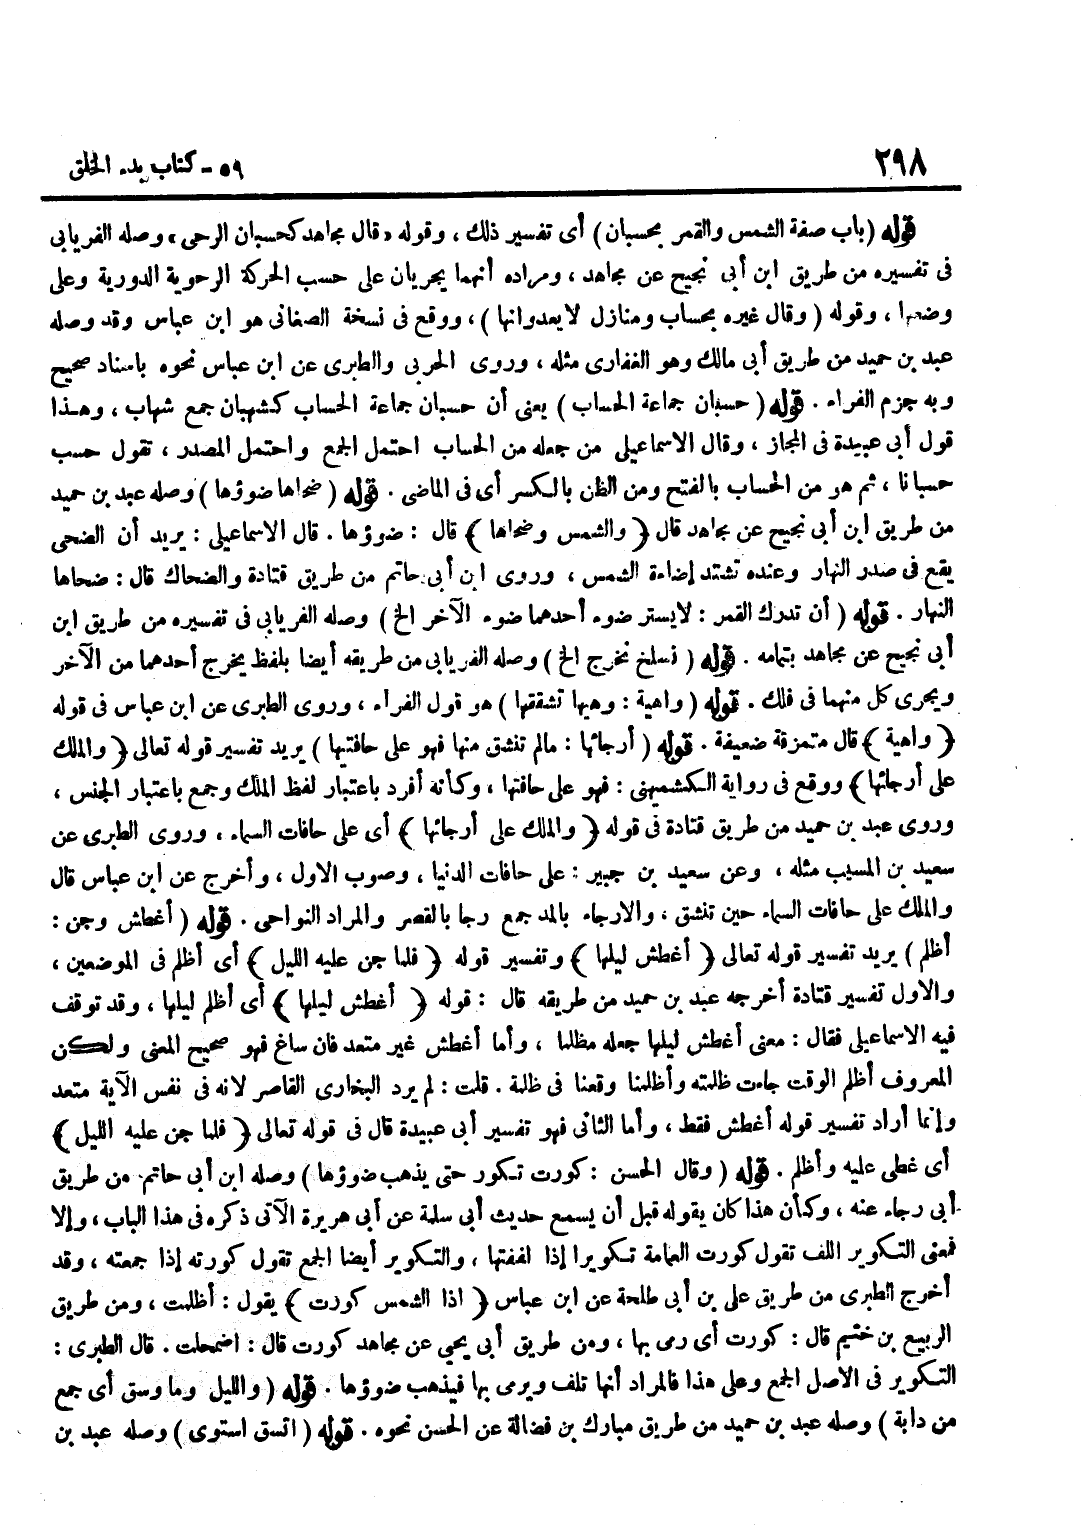 ٢٩٨
٥٩ - كتاب بدء الخلق
قوله (باب صفة الشمس والقمر بحسبان) أى تفسير ذلك ، وقوله «قال مجاهد كحسبان الرحى» وصله الفريابى
فى تفسيره من طريق ابن أبى نجيح عن مجاهد ، ومراده أنهما يجريان على حسب الحركة الرحوية الدورية وعلى
وضعها ، وقوله ( وقال غيره بحساب ومنازل لا يعدوانها ) ، ووقع فى نسخة الصغانى هو ابن عباس وقد وصله
عبد بن حميد من طريق أبى مالك وهو الغفارى مثله ، وروى الحربى والطبرى عن ابن عباس نحوه باسناد صحيح
وبه جزم الفراء . قوله ( حسبان جماعة الحساب ) يعنى أن حسبان جماعة الحساب كشهبان جمع شهاب ، وهذا
قول أبى عبيدة فى المجاز ، وقال الاسماعيلى من جعله من الحساب احتمل الجمع واحتمل المصدر ، تقول حسب
حسبانا ، ثم هو من الحساب بالفتح ومن الظن بالكسر أى فى الماضى . قوله ( ضحاها ضوؤها ) وصله عبد بن حميد
من طريق ابن أبى نجيح عن مجاهد قال ﴿ والشمس وضحاها ﴾ قال : ضوؤها . قال الاسماعيلى : يريد أن الضحى
يقع فى صدر النهار وعنده تشتد إضاءة الشمس ، وروى ابن أبى حاتم من طريق قتادة والضحاك قال : ضحاها
النهار . قوله ( أن تدرك القمر : لايستر ضوء أحدهما ضوء الآخر الخ ) وصله الفريابى فى تفسيره من طريق ابن
أبى نجيح عن مجاهد بتمامه . قوله ( نسلخ نخرج الخ ) وصله الفريابى من طريقه أيضا بلفظ يخرج أحدهما من الآخر
ويجرى كل منهما فى فلك . قوله ( واهية : وهيها تشققها ) هو قول الفراء ، وروى الطبرى عن ابن عباس فى قوله
﴿ واهية ﴾ قال متمزقة ضعيفة . قوله ( أرجائها : مالم تنشق منها فهو على حافتيها ) يريد تفسير قوله تعالى ﴿ والملك
على أرجائها ﴾ ووقع فى رواية الكشميهنى : فهو على حافتها ، وكأنه أفرد باعتبار لفظ الملك وجمع باعتبار الجنس ،
وروى عبد بن حميد من طريق قتادة فى قوله ﴿ والملك على أرجائها ﴾ أى على حافات السماء ، وروى الطبرى عن
سعيد بن المسيب مثله ، وعن سعيد بن جبير : على حافات الدنيا ، وصوب الاول ، وأخرج عن ابن عباس قال
والملك على حافات السماء حين تنشق ، والارجاء بالمد جمع رجا بالقصر والمراد النواحى . قوله ( أغطش وجن :
أظلم ) يريد تفسير قوله تعالى ﴿ أغطش ليلها ﴾ وتفسير قوله ﴿ فلما جن عليه الليل ﴾ أى أظلم فى الموضعين ،
والاول تفسير قتادة أخرجه عبد بن حميد من طريقه قال : قوله ﴿ أغطش ليلها ﴾ أى أظلم ليلها ، وقد توقف
فيه الاسماعيلى فقال : معنى أغطش ليلها جعله مظلما ، وأما أغطش غير متعد فان ساغ فهو صحيح المعنى ولكن
المعروف أظلم الوقت جاءت ظلمته وأظلمنا وقعنا فى ظلمة . قلت : لم يرد البخارى القاصر لانه فى نفس الآية متعد
وإنما أراد تفسير قوله أغطش فقط ، وأما الثانى فهو تفسير أبى عبيدة قال فى قوله تعالى ﴿ فلما جن عليه الليل ﴾
أى غطى عليه وأظلم . قوله ( وقال الحسن : كورت تكور حتى يذهب ضوؤها ) وصله ابن أبى حاتم من طريق
أبى رجاء عنه ، وكأن هذا كان يقوله قبل أن يسمع حديث أبى سلمة عن أبى هريرة الآتى ذكره فى هذا الباب ، وإلا
فمعنى التكوير اللف تقول كورت العمامة تكويرا إذا لففتها ، والتكوير أيضا الجمع تقول كورته إذا جمعته ، وقد
أخرج الطبرى من طريق على بن أبى طلحة عن ابن عباس ﴿ اذا الشمس كورت ﴾ يقول : أظلمت ، ومن طريق
الربيع بن خثيم قال : كورت أى رمى بها ، ومن طريق أبى يحيى عن مجاهد كورت قال : اضمحلت . قال الطبرى :
التكوير فى الاصل الجمع وعلى هذا فالمراد أنها تلف ويرمى بها فيذهب ضوؤها . قوله ( والليل وما وسق أى جمع
من دابة ) وصله عبد بن حميد من طريق مبارك بن فضالة عن الحسن نحوه . قوله ( اتسق استوى ) وصله عبد بن